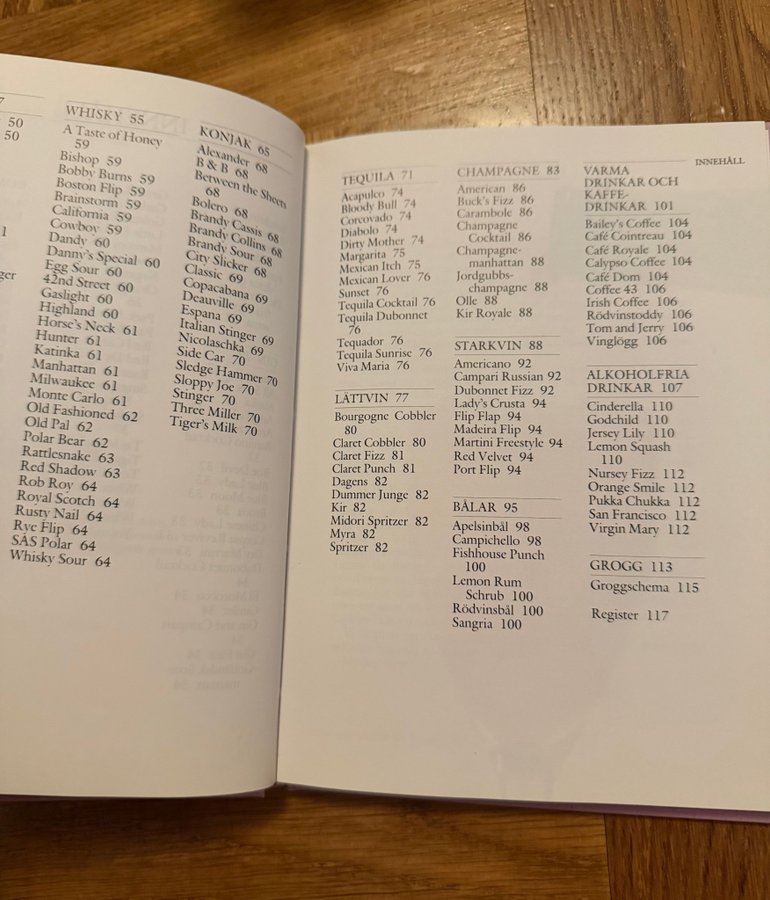 7
50
50
1
ger
WHISKY 55
A Taste of Honey
59
Bishop 59
Bobby Burns 59
Boston Flip 59
Brainstorm 59
California 59
Cowboy 59
Dandy 60
Danny's Special 60
Egg Sour 60
42nd Street 60
Gaslight 60
Highland 60
Horse's Neck 61
Hunter 61
Katinka 61
Manhattan 61
Milwaukee 61
Monte Carlo 61
Old Fashioned 62
Old Pal 62
Polar Bear 62
Rattlesnake 63
Red Shadow 63
Rob Roy 64
Royal Scotch 64
Rusty Nail 64
Rye Flip 64
SAS Polar 64
Whisky Sour 64
KONJAK 65
Alexander 68
B & B 68
Between the Sheets
68
Bolero 68
Brandy Cassis 68
Brandy Collins 68
Brandy Sour 68
City Slicker 68
Classic 69
Copacabana 69
Deauville 69
Espana 69
Italian Stinger 69
Nicolaschka 69
Side Car 70
Sledge Hammer 70
Sloppy Joe 70
Stinger 70
Three Miller 70
Tiger's Milk 70
INNEHÅLL
TEQUILA 71
Acapulco 74
Bloody Bull 74
Corcovado 74
Diabolo 74
Dirty Mother 74
Margarita 75
Mexican Itch 75
Mexican Lover 76
Sunset 76
Tequila Cocktail 76
Tequila Dubonnet
76
Tequador 76
Tequila Sunrise 76
Viva Maria 76
LÄTTVIN 77
Bourgogne Cobbler
80
Claret Cobbler 80
Claret Fizz 81
Claret Punch 81
Dagens 82
Dummer Junge 82
Kir 82
Midori Spritzer 82
Myra 82
Spritzer 82
CHAMPAGNE 83
American 86
Buck's Fizz 86
Carambole 86
Champagne
Cocktail 86
Champagne-
manhattan 88
Jordgubbs-
champagne 88
Olle 88
Kir Royale 88
STARKVIN 88
Americano 92
Campari Russian 92
Dubonnet Fizz 92
Lady's Crusta 94
Flip Flap 94
Madeira Flip 94
Martini Freestyle 94
Red Velvet 94
Port Flip 94
BÅLAR 95
Apelsinbål 98
Campichello 98
Fishhouse Punch
100
Lemon Rum
Schrub 100
Rödvinsbål 100
Sangria 100
VARMA
DRINKAR OCH
KAFFE-
DRINKAR 101
Bailey's Coffee 104
Café Cointreau 104
Café Royale 104
Calypso Coffee 104
Café Dom 104
Coffee 43 106
Irish Coffee 106
Rödvinstoddy 106
Tom and Jerry 106
Vinglögg 106
ALKOHOLFRIA
DRINKAR 107
Cinderella 110
Godchild 110
Jersey Lily 110
Lemon Squash
110
Nursey Fizz 112
Orange Smile 112
Pukka Chukka 112
San Francisco 112
Virgin Mary 112
GROGG 113
Groggschema 115
Register 117